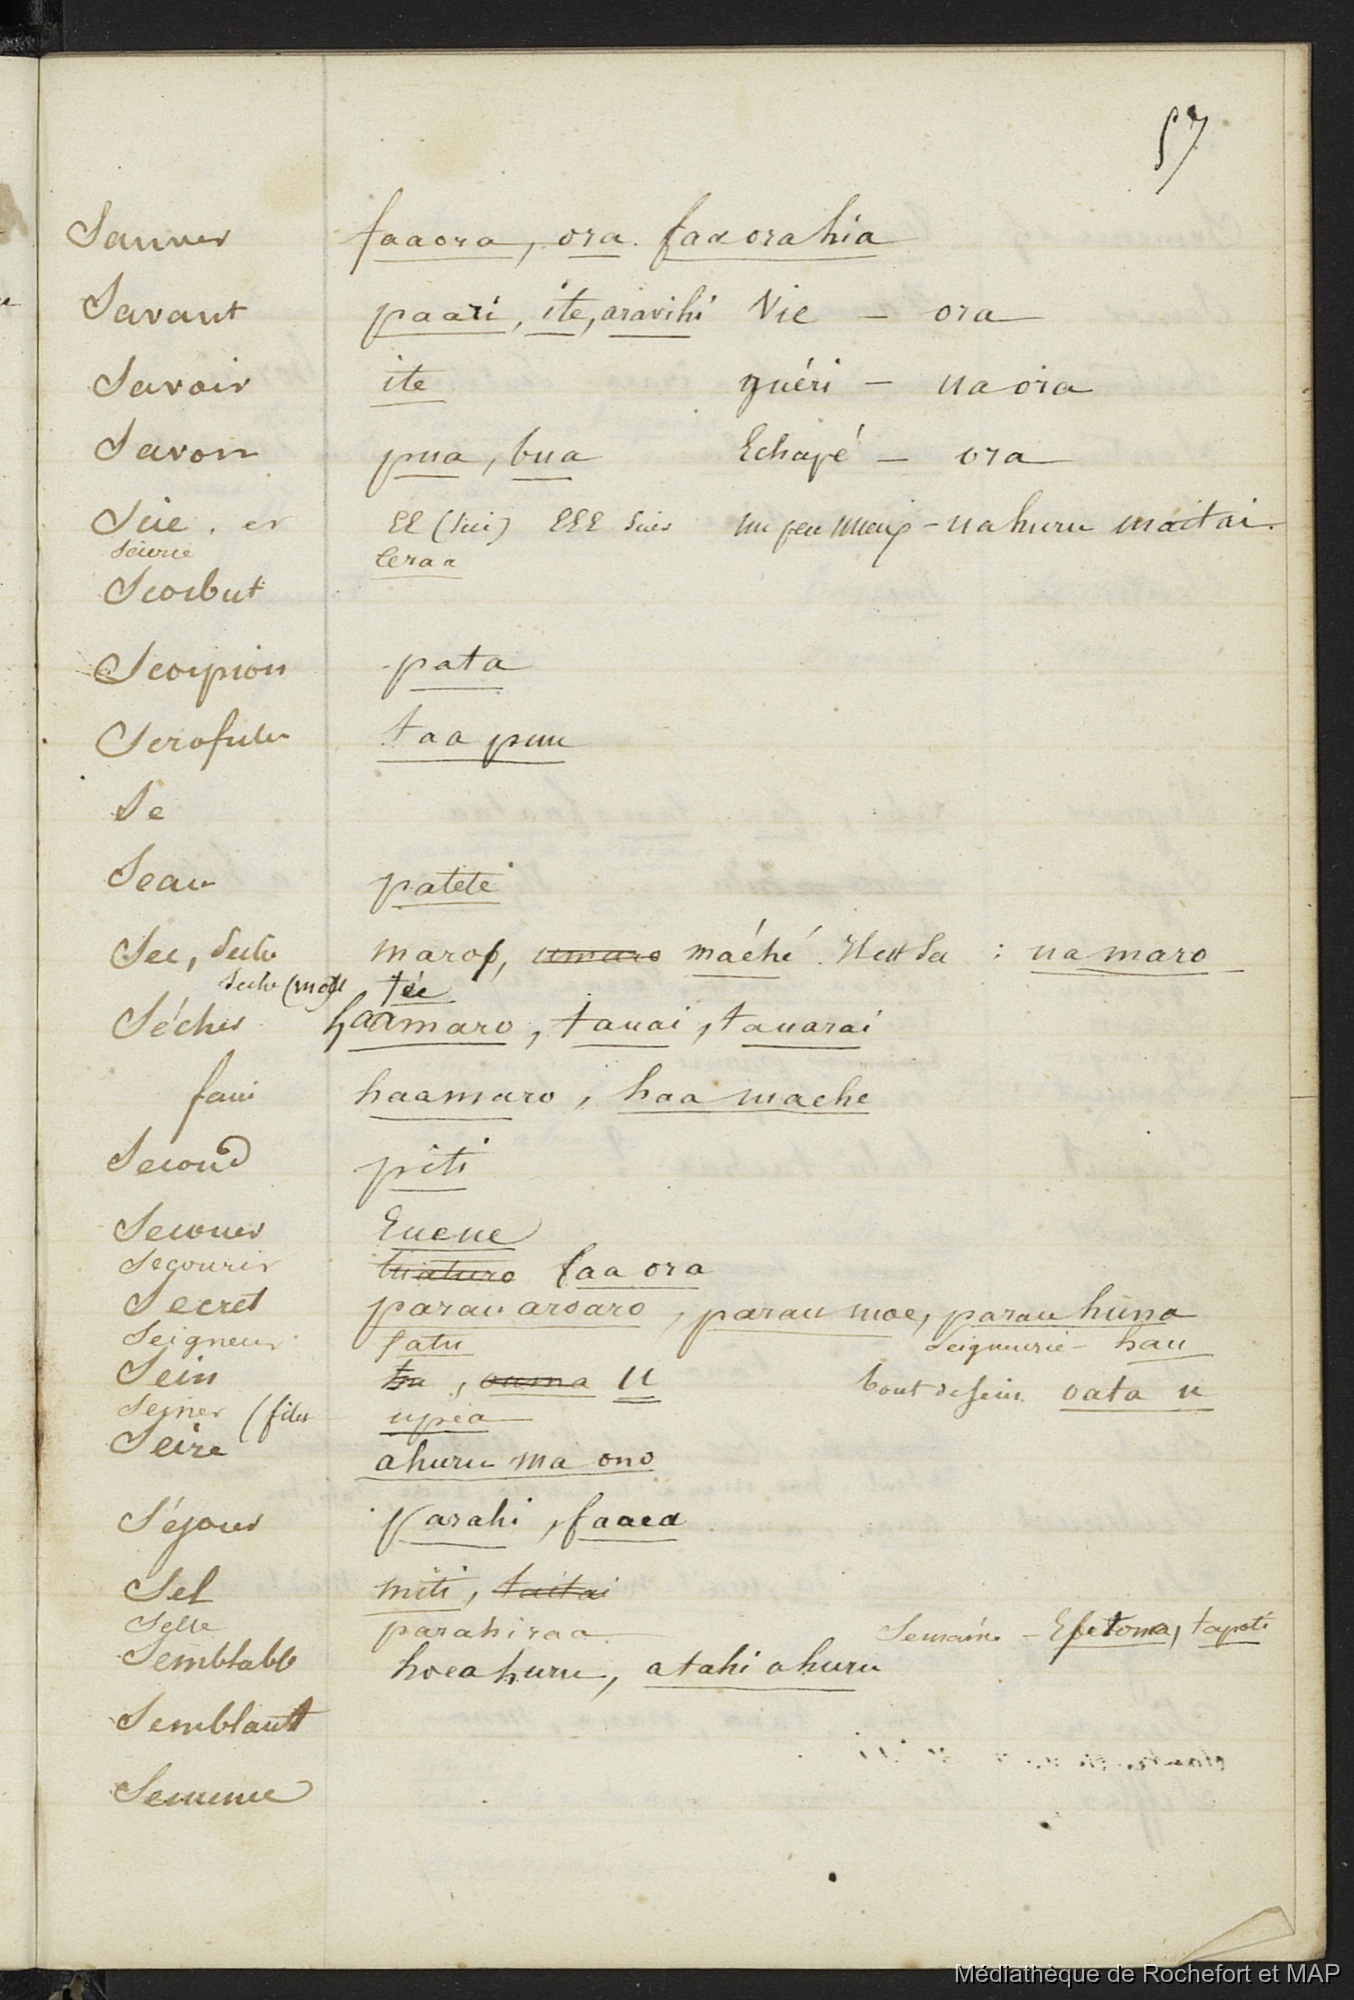 57
Sauver faaora, ora. faaorahia
Savant paari, ite, aravihi Vie — ora
Savoir ite guéri — ua ora
Savon pua, bua Echapé — ora
Scie . er EE (scie) EEE scier un peu mieux - uahuru maitai.
Scierie eeraa
Scorbut
Scorpion pata
Scrofules taa puu
Se
Seau patete
Sec, Seche maro, umaro máéhé Il est Sec : ua maro
Seche (mot tée
Sécher haamaro, tauai, tauarai
faire haamaro, haa maehe
Second piti
Secouer Eueue
Secourir faa ora
Secret parau aroaro, parau moe, parau huna
Seigneur fatu Seigneurie - hau
Sein tu, ouma U bout de sein oata u
Seiner (filet upea
Seize ahuru ma ono
Séjour Parahi, faaea
Sel miti, taitai
Selle parahiraa Semaine - Efetoma, tapati
Semblable hoeahuru, atahi ahuru
Semblant
Semence
Médiathèque de Rochefort et MAP